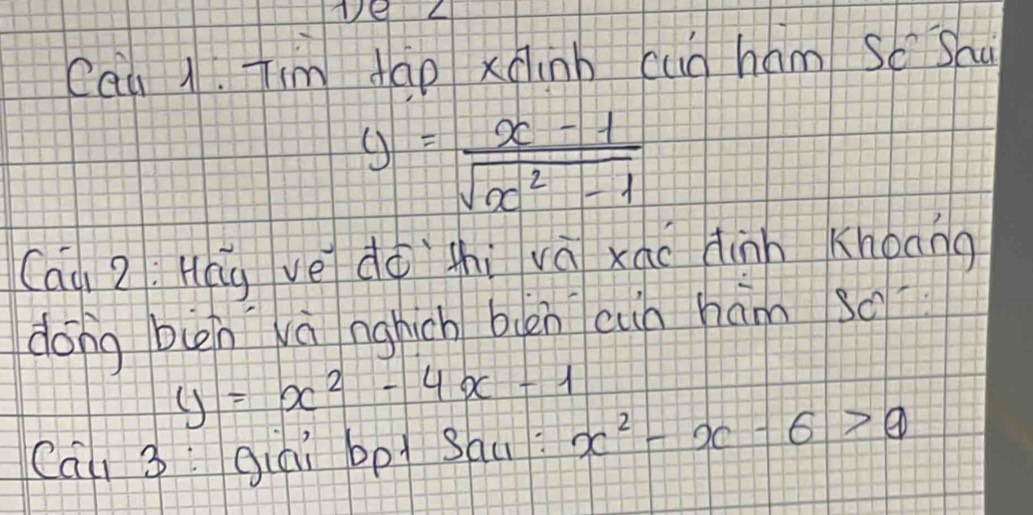 Đề 2
Câu 1: Tìm tập xđịnh của hàm số sau
y = \frac{x - 1}{\sqrt{x^2 - 1}}
Câu 2: Hãy vẽ đồ thị và xác định khoảng
đồng biến và nghịch biến của hàm số:
y = x² - 4x - 1
Câu 3: giải bpt sau: x² - x - 6 > 0